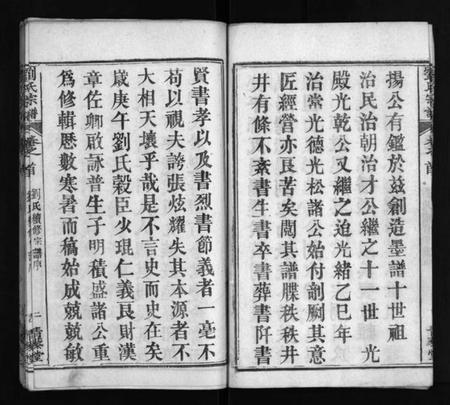 揚公有鑑於茲創造墨譜十世祖
治民治朝治才公繼之十一世光
殿光乾公又繼之迨光緒乙巳年
治常光德光松諸公始付剞劂其意
匠經營亦艮苦矣閱其譜牒秩秩井
井有條不紊書生書卒書葬書阡書
賢書孝以及書烈書節義者一毫不
苟以視夫誇張炫耀失其本源者不
大相天壤乎哉是不言史而史在矣
歲庚午劉氏穀臣少琨仁義良財漢
章佐卿啟詠普生子明積盛諸公重
為修輯慇數寒暑而稿始成兢兢敏
劉氏宗譜 卷之首 劉氏續修宗譜序 二